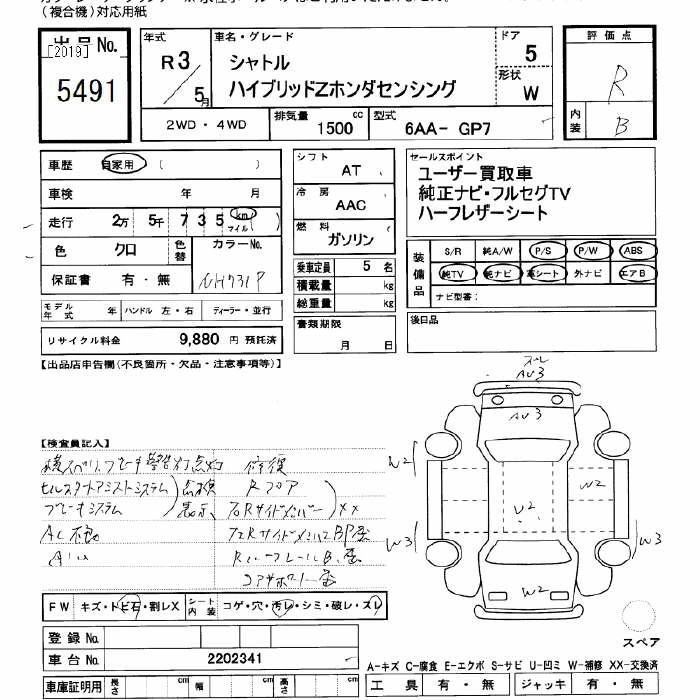 （複合機）対応用紙
出品No.
[2019]
5491
年式
R3/5月
車名・グレード
シャトル
ハイブリッドZホンダセンシング
ドア
5
形状
W
2WD・4WD
排気量
1500 cc
型式
6AA- GP7
評価点
R
内装
B
車歴 自家用 （ ）
車検 年 月
走行 2万 5千 7 3 5 km マイル ( )
色 クロ 色替 カラーNo.
NH731P
保証書 有・無
モデル年式 年 ハンドル 左・右 ディーラー・並行
リサイクル料金 9,880 円 預託済
シフト AT
冷房 AAC
燃料 ガソリン
乗車定員 5 名
積載量 kg
総重量 kg
書類期限
月 日
セールスポイント
ユーザー買取車
純正ナビ・フルセグTV
ハーフレザーシート
装備品
S/R 純A/W P/S P/W ABS
純TV 純ナビ 革シート 外ナビ エアB
ナビ型番：
後日品
【出品店申告欄(不良箇所・欠品・注意事項等)】
【検査員記入】
横スベリ、ブレーキ警告灯点灯
ヒルスタートアシストシステム
ブレーキシステム
点検
表示
AC不冷
修復
Rフロア
右Rサイドメンバー XX
AU3
AU3
W2
W2
U2
W3
W3
W2
FW キズ・トビ石・割レX シート内装 コゲ・穴・汚レ・シミ・破レ・スレ
登録No.
車台No. 2202341
車庫証明用 長さ cm 幅 cm 高さ cm
スペア
A-キズ C-腐食 E-エクボ S-サビ U-凹ミ W-補修 XX-交換済
工具 有・無 ジャッキ 有・無